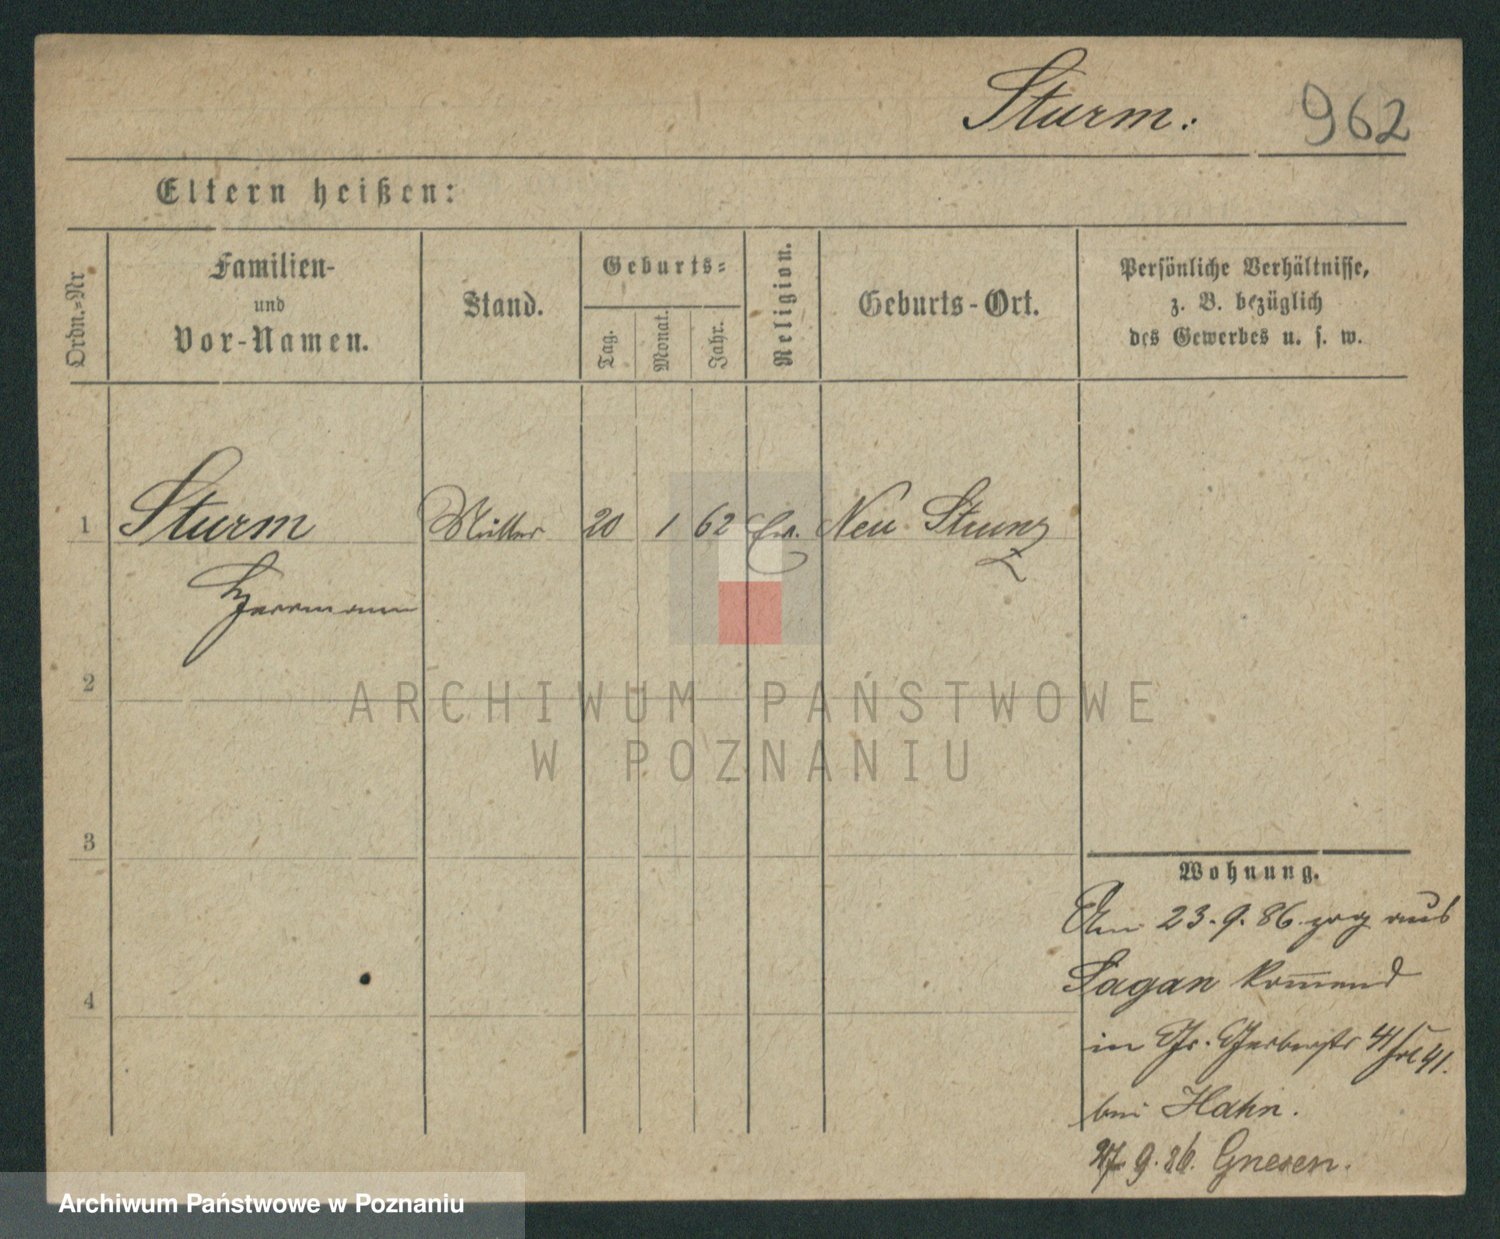 Sturm. 962
Eltern heißen:
Ordn.=Nr
Familien-
und
Vor-Namen.
Stand.
Geburts=
Tag.
Monat.
Jahr.
Religion.
Geburts-Ort.
Persönliche Verhältnisse,
z. B. bezüglich
des Gewerbes u. s. w.
1 Sturm Müller 20 1 62 Ev. Neu Strunz
Herrmann
2
ARCHIWUM PAŃSTWOWE
W POZNANIU
3
Wohnung.
Am 23.9.86. zog aus
Sagan kommend
4
in Gr. Gerberstr 41
bei Hahn.
27.9.86. Gnesen.
Archiwum Państwowe w Poznaniu